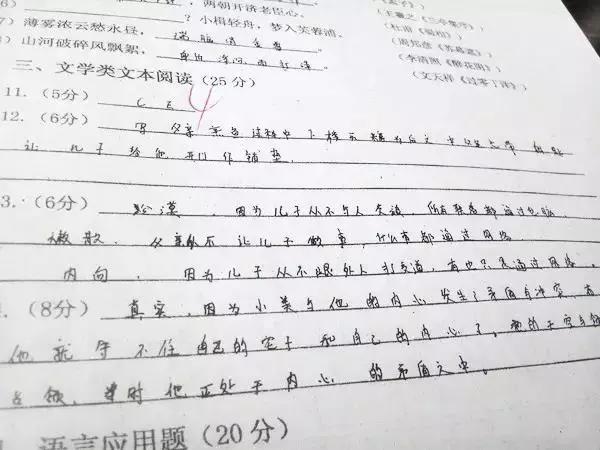 两朝开济老臣心。
?小楫轻舟,梦入芙蓉浦。
7) 薄雾浓云愁永昼, 瑞脑消金兽
8) 山河破碎风飘絮, 身世浮沉雨打萍
(王羲之《兰亭集序》)
(杜甫《蜀相》)
(周邦彦《苏幕遮》)
(李清照《醉花阴》)
(文天祥《过零丁洋》)
三、文学类文本阅读(25分)
11. (5分) C E 4
12. (6分) 写父亲
让儿子给他开门作铺垫.
3. (6分) 冷漠,因为儿子从不与人交谈,所有联络都通过电脑.
懒散.父亲从不让儿子做事,什么都通过网络
内向,因为儿子从不跟外人打交道,有也只是通过网络.
(8分) 真实.因为小美与他的内心发生了矛盾与冲突,
他就守不住自己的空子和自己的内心了。
占领,当时他正处于内心的矛盾之中。
语言应用题(20分)